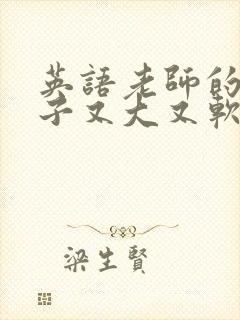 英語老師的
子又大又軟
梁生賢